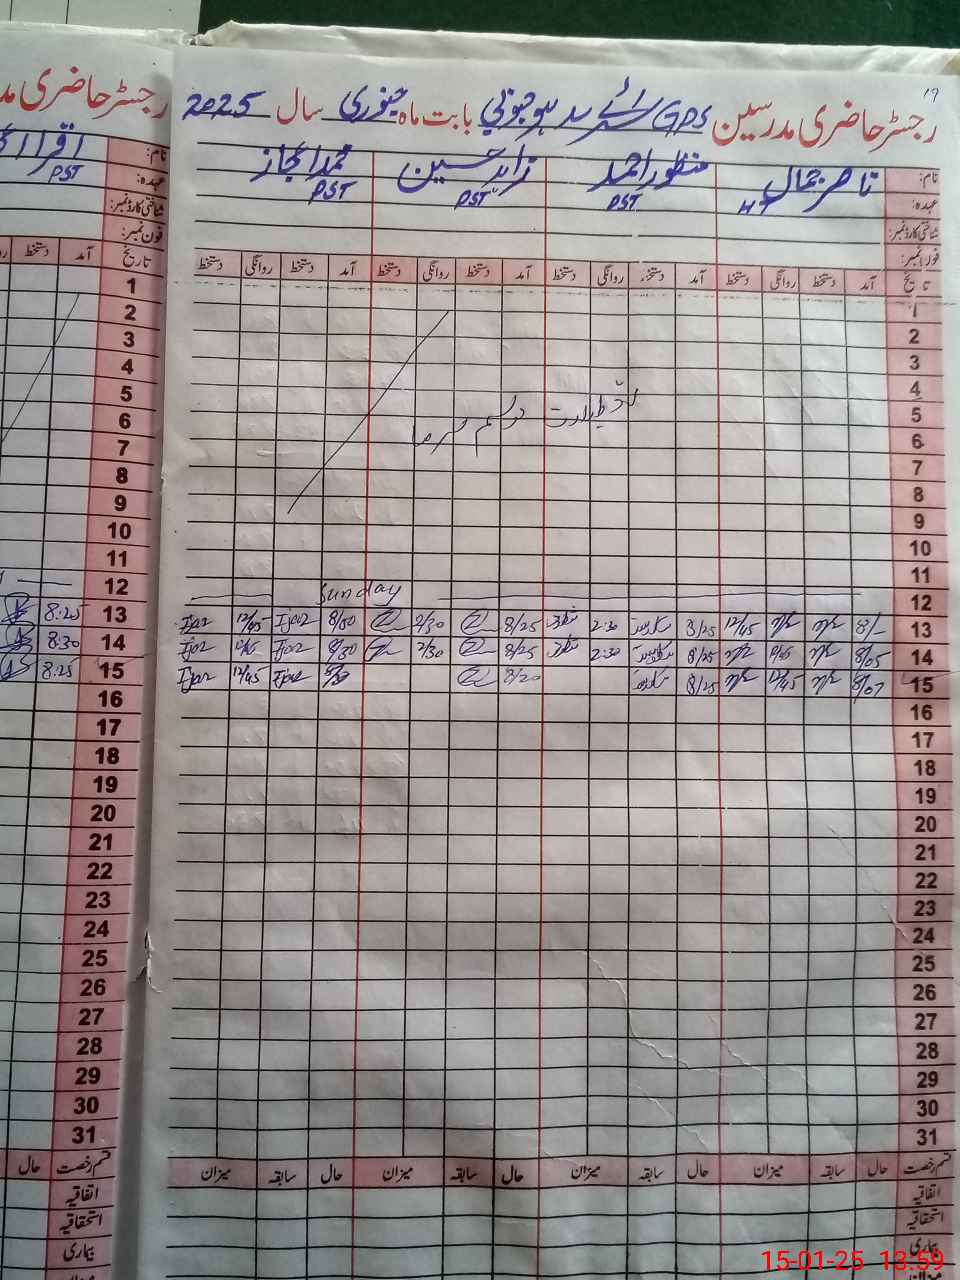 19
رجسٹر حاضری مدرسین GPS بابت ماہ جنوری سال 2025
رجسٹر حاضری مد
نام: ناصر جمال منظور احمد زاہد حسین محمد اعجاز
عہدہ: HT PST PST PST
شناختی کارڈ نمبر:
فون نمبر:
تاریخ آمد دستخط روانگی دستخط آمد دستخط روانگی دستخط آمد دستخط روانگی دستخط آمد دستخط روانگی دستخط
نام: اقرا
عہدہ: PST
شناختی کارڈ نمبر:
فون نمبر:
تاریخ آمد دستخط
1
2
3
4
5
موسم سرما
6
7
8
9
10
11
12 Sunday
13 8/- 12/45 8/25 2:30 8/25 2/30 8/00 Ijaz 12/45 Ijaz
14 8/05 8/25 2:30 8/25 2/30 8/30 Ijaz Ijaz
15 8/07 12/45 8/25 8/20 Ijaz 12/45 Ijaz
16
17
18
19
20
21
22
23
24
25
26
27
28
29
30
31
قسم رخصت حال سابقہ میزان حال سابقہ میزان حال سابقہ میزان حال سابقہ میزان
اتفاقیہ
استحقاقیہ
بیماری
میزان
1
2
3
4
5
6
7
8
9
10
11
12
13 8:25
14 8:30
15 8:25
16
17
18
19
20
21
22
23
24
25
26
27
28
29
30
31
قسم رخصت حال
اتفاقیہ
استحقاقیہ
بیماری
15-01-25 13:59